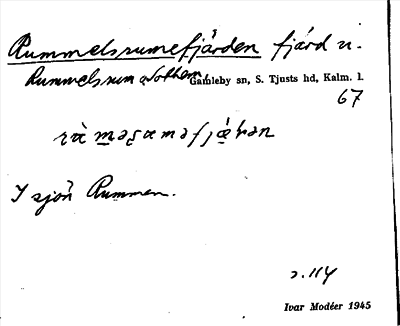 Rummelsrumefjärden fjärd v.
Rummelsrum o. Lofthem, Gamleby sn, S. Tjusts hd, Kalm. l.
67
I sjön Rummen.
s. 114
Ivar Modéer 1945